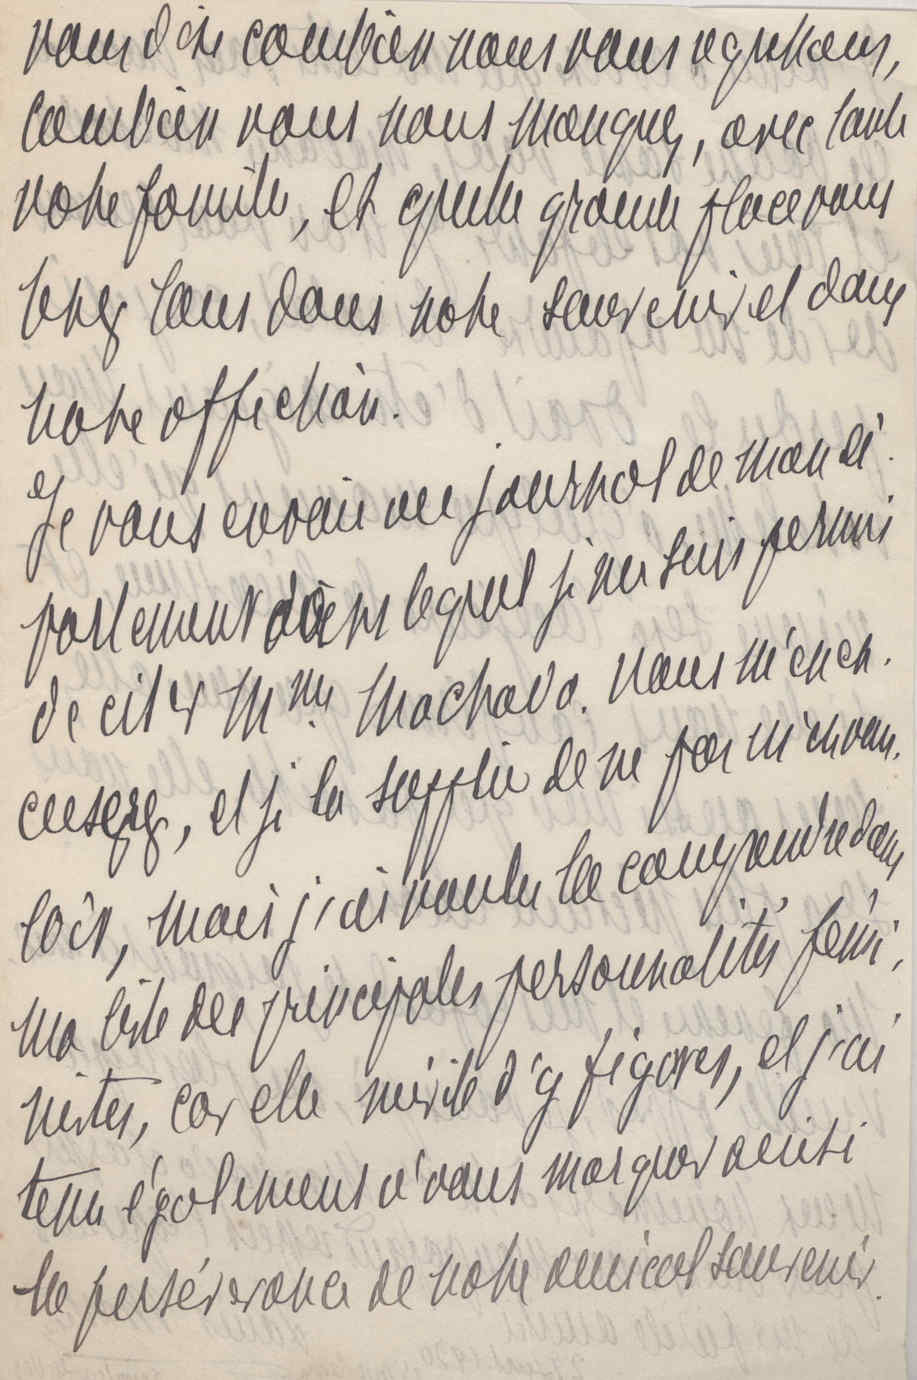 vous dire combien nous vous regrettons,
combien vous nous manquez, avec toute
votre famille, et quelle grande place vous
tenez tous dans notre souvenir et dans
notre affection.
Je vous envoie un journal de
parlement dans lequel je me suis permis
de citer Mme Machado. Vous m'en ex-
cuserez, et je la supplie de ne pas m'en vou-
loir, mais j'ai voulu la comprendre dans
ma liste des principales personnalités fémi-
nistes, car elle mérite d'y figurer, et j'ai
tenu également à vous marquer ainsi
la persévérance de notre amical souvenir.